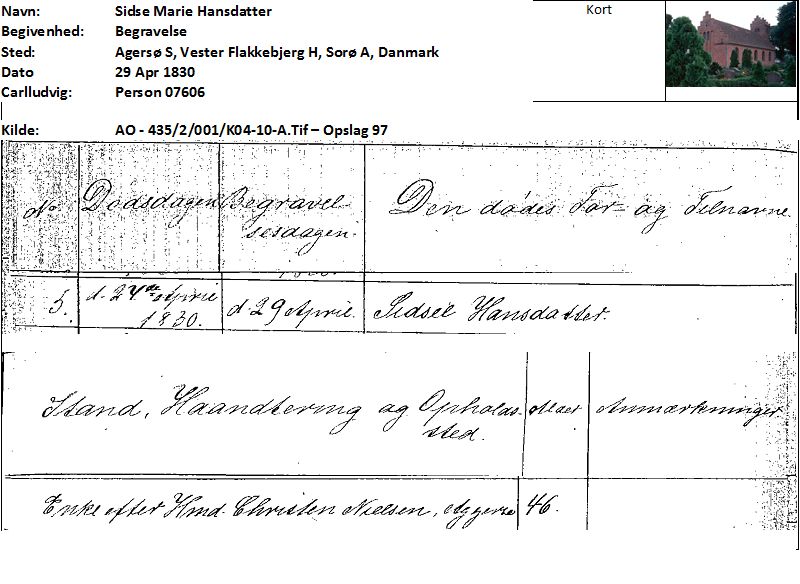 Navn: Sidse Marie Hansdatter
Begivenhed: Begravelse
Sted: Agersø S, Vester Flakkebjerg H, Sorø A, Danmark
Dato 29 Apr 1830
Carlludvig: Person 07606
Kort
Kilde: AO - 435/2/001/K04-10-A.Tif – Opslag 97
No Dødsdagen Begravel- Den dødes For- og Tilnavne.
sesdagen.
5. d. 24de April d. 29 April. Sidsel Hansdatter.
1830.
Stand, Haandtering og Opholds- Alder Anmærkninger
sted.
Enke efter Hmd. Christen Nielsen, 46.